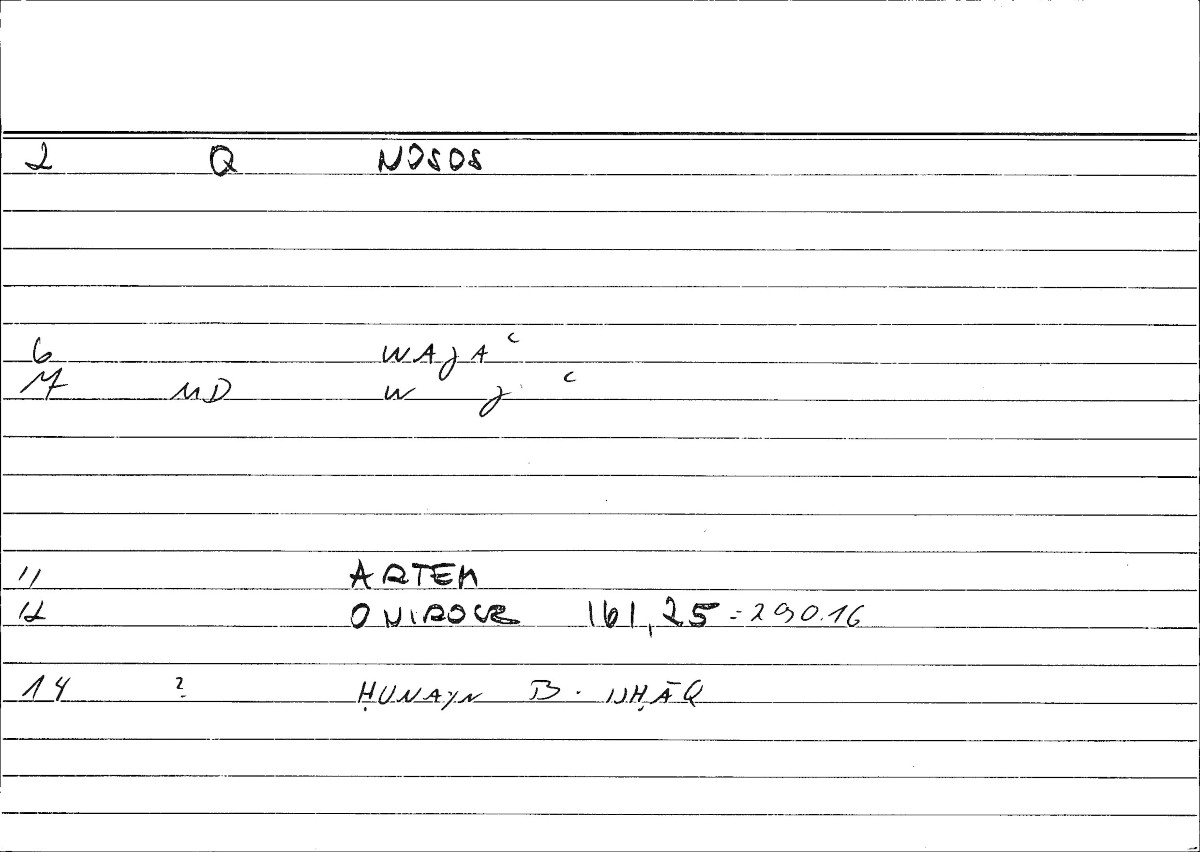 2 Q NOSOS
6 WAJAʿ
7 MD W J ʿ
11 ARTEM
12 ONIROCR 161,25 = 290.16
14 ? ḤUNAYN B. ISḤĀQ